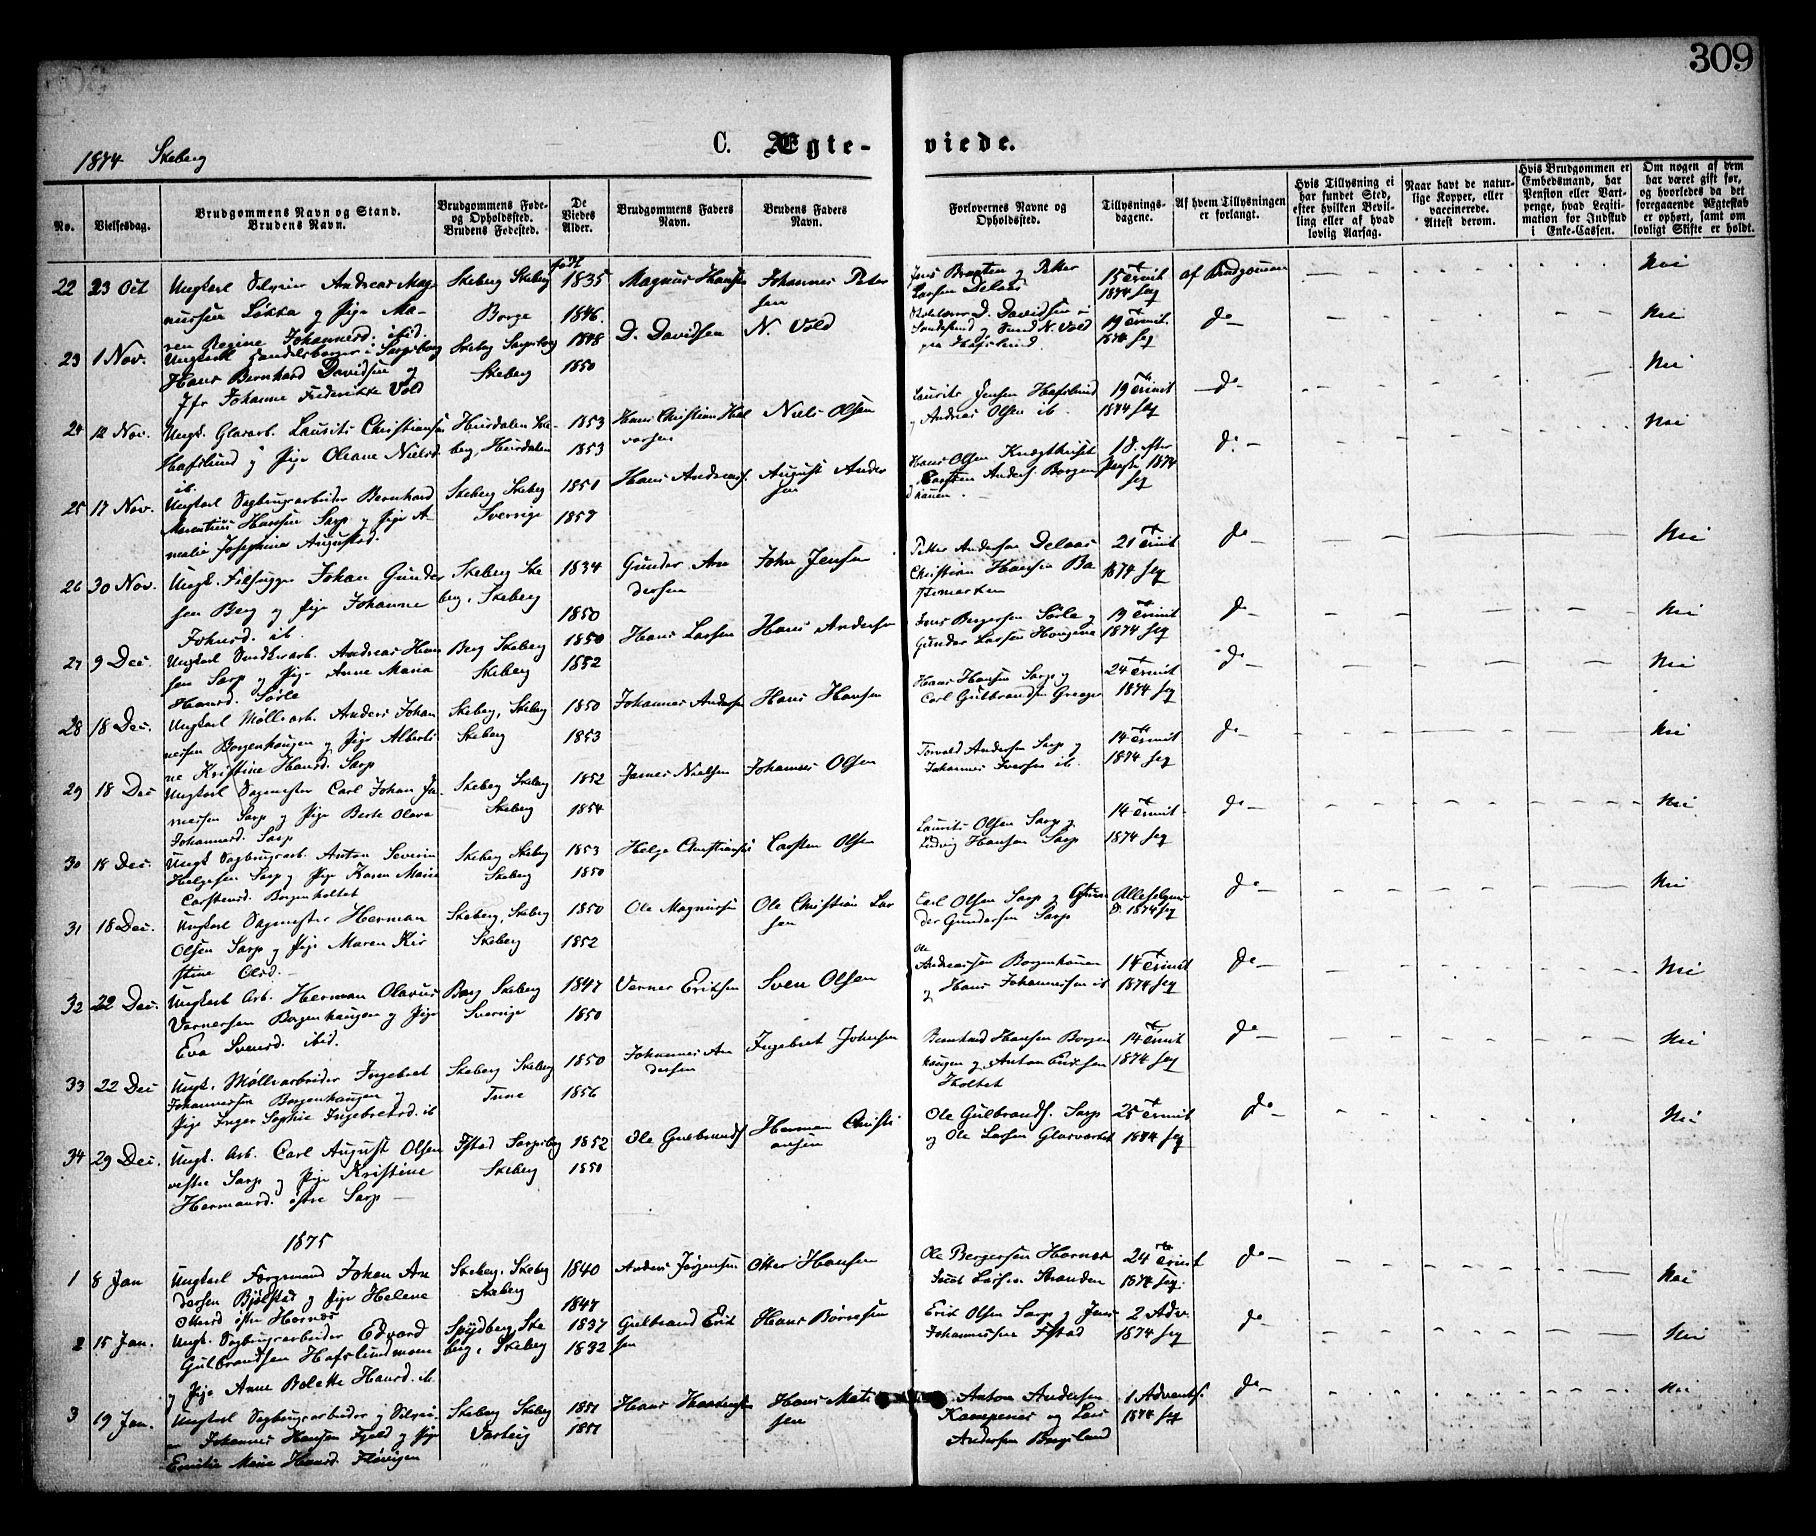 309
1874 Skeberg
C. Ægte-
viede.
No.
Vielsesdag.
Brudgommens Navn og Stand.
Brudens Navn.
Brudgommens Føde-
og Opholdssted.
Brudens Fødested.
De
Viedes
Alder.
Brudgommens Faders
Navn.
Brudens Faders
Navn.
Forlovernes Navne og
Opholdssted.
Tillysnings-
dagene.
Af hvem Tillysningen
er forlangt.
Hvis Tillysning ei
har fundet Sted,
efter hvilken Bevil-
ling eller af hvad
lovlig Aarsag.
Naar havt de natur-
lige Kopper, eller
vaccinerede.
Attest derom.
Hvis Brudgommen er
Embedsmand, har
Pension eller Vart-
penge, hvad Legiti-
mation for Indskud
i Enke-Cassen.
Om nogen af dem
har været gift før,
og hvorledes da det
foregaaende Ægteskab
er ophørt, samt om
lovligt Skifte er holdt.
22 23 Oct Ungkarl Andreas Mag
nussen Løkka og Pige Ma-
ren Regine Johannesd. ibid.
Skeberg Skeberg
Borge
født 1835
1846.
Magnus Hansen
Johannes Peter
sen
Jens Braaten og Petter
Larsen Delaas
15 Trinit
1874 Seq
af Brudgommen
Nei
23 1 Nov. Ungkarl Handelsborger i Sarpsborg
Hans Bernhard Davidsen og
Jfr Johanne Frederikke Vold
Skebg Sarpsborg
Skeberg
1848
1850
D. Davidsen
N. Vold
D. Davidsen i
Sandesund og N. Vold
paa Hafslund.
19 Trinit.
1874 Seq
do
Nei
24 12 Nov. Ungk. Glasarb. Laurits Christiansen
Hafslund og Pige Oleane Nielsd.
ib.
Hurdalen Ske-
berg, Hurdalen
1853
1853
Hans Christian Hal
vorsen
Niels Olsen
Laurits Jensen Hafslund
og Andreas Olsen ib.
19 Trinit
1874 Seq
do
Nei
25 17 Nov. Ungkarl Sagbrugsarbeider Bernhard
Marentius Hansen Sarp og Pige A-
malie Josephine Augustsd.
Skeberg Skeberg
Sverige
1850
1857
Hans Andreass.
August Ander
sen
Hans Olsen
Carsten Anders. Borgen
hauen.
18. efter
Pintse 1874
Seq
do
Nei
26 30 Nov. Ungk. Johan Gunder
sen Berg og Pige Johanne
Johnsd. ib.
Skeberg Ske
berg, Skeberg
1834
1850
Gunder An
dersen
John Jensen
Petter Andersen Delaas
Christian Hansen Ba
stemarken
21 Trinit
1874 Seq
do
Nei
27 9 Dec. Ungkarl Andreas Han
sen Sarp og Pige Anne Maria
Hansd. Sørle
Berg Skeberg
Skeberg
1850
1852
Hans Larsen
Hans Andersen
Jens Bergersen Sørle og
Gunder Larsen Hougene
19 Trinit
1874 Seq
do
Nei
28 18 Dec. Ungkarl Møllearb. Anders Johan
nessen Borgenhaugen og Pige Alberti
ne Kristine Hansd. Sarp
Skeberg, Skeberg
Skeberg
1850
1853
Johannes Andersen
Hans Hansen
Hans Hansen Sarp og
Carl Gulbrandsen Greager
24 Trinit
1874 Seq
do
Nei
29 18 Dec Ungkarl Sagmester Carl Johan Ja-
mesen Sarp og Pige Berte Olava
Johannesd. Sarp
Skeberg Skeberg
Skeberg
1852
1854
James Nielsen
Johannes Olsen
Torvald Andersen Sarp og
Johannes Iversen ib.
14 Trinit.
1874 Seq.
do
Nei
30 18 Dec. Ungk Sagbrugsarb. Anton Severin
Helgesen Sarp og Pige Karen Marie
Carstensd. Borgenholtet
Skeberg Skeberg
Skeberg
1853
1850
Helge Christiansen
Carsten Olsen
Laurits Olsen Sarp og
Ludvig Hansen Sarp
14 Trinit-
1874 Seq
do
Nei
31 18 Dec. Ungkarl Sagmester Herman
Olsen Sarp og Pige Maren Kir
stine Olsd.
Skeberg, Skeberg
Skeberg
1850
1852
Ole Magnussen
Ole Christian Lar
sen
Carl Olsen Sarp og Gun
der Gundersen Sarp
Allehelgens
D. 1874 Seq
do
Nei
32 22 Dec. Ungkarl Arb. Herman Olavus
Vernersen Borgenhaugen og Pige
Eva Svensd. ibid.
Berg Skeberg
Sverige
1847
1850
Verner Eriksen
Sven Olsen
Ole
Andreassen Borgenhauen
og Hans Johannessen ib
14 Trinit
1874 Seq
do
Nei
33 22 Dec Ungk. Møllearbeider Ingebret
Johannessen Borgenhaugen og
Pige Inger Sophie Ingebretsd. ib
Skeberg Skeberg
Tune
1850
1856
Johannes An
dersen
Ingebret Johnsen
Bernhard Hansen Borgen
haugen og Anton Eriksen
Holtet
14 Trinit
1874 Seq
do
Nei
34 29 Dec. Ungk. Arb. Carl August Olsen
vestre Sarp og Pige Kristine
Hermansd. østre Sarp
Istad Sarpsborg
Skeberg
1852
1850
Ole Gulbrands.
Herman Christi
ansen
Ole Gulbrands. Sarp
og Ole Larsen Glasværket
25 Trinit
1874 Seq
do
Nei
1875
1 8 Jan Ungkarl Færgemand Johan An
dersen Bjølstad og Pige Helene
Ottersd østre Hornæs
Skeberg. Skeberg
Skeberg
1840
1847
Anders Jørgensen
Otter Hansen
Ole Bergersen Hornæs
Larsen Stranden
24 Trinit
1874 Seq.
do
Nei
2 15 Jan. Ungk. Sagbrugsarbeider Edvard
Gulbrandsen Hafslundmoen
og Pige Anne Bolette Hansd. ib
Spydberg Ske
berg. Skeberg
1837
1832
Gulbrand Erik
sen
Hans Børresen
Erik Olsen Sarp og Jens
Johannessen Istad
2 Adv.
1874 Seq
do
Nei
3 19 Jan. Ungkarl Sagbrugsarbeider og
Johannes Hansen Fjeld og Pige
Emilie Marie Hansd. Fløvigen
Skeberg Skeberg
Varteig
1851
1851
Hans Haagensen
Hans Mati
sen
Anton Andersen
Kampenes og Lars
Andersen Bergsland
1 Advents.
1874 Seq
do
Nei